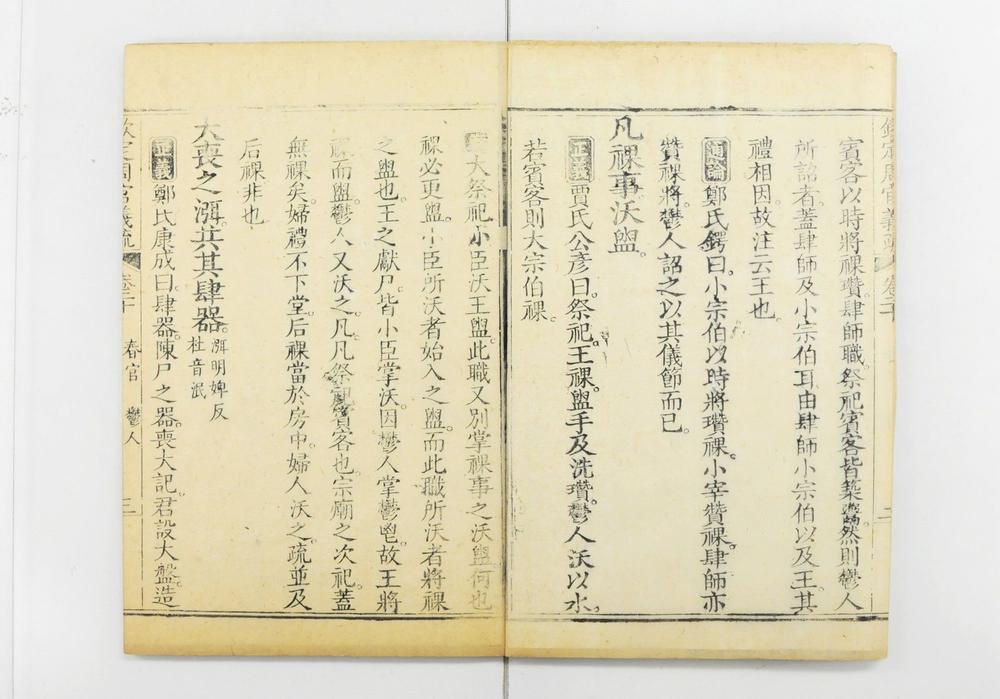 欽定周官義疏 卷二十 二
賓客以時將祼瓚肆師職祭祀賓客皆築鬻然則鬱人
所詔者蓋肆師及小宗伯耳由肆師小宗伯以及王其
禮相因故注云王也
通論鄭氏鍔曰小宗伯以時將瓚祼小宰贊祼肆師亦
贊祼將鬱人詔之以其儀節而已
凡祼事沃盥
正義賈氏公彥曰祭祀王祼盥手及洗瓚鬱人沃以水
若賓客則大宗伯祼
大祭祀小臣沃王盥此職又別掌祼事之沃盥何也
祼必更盥小臣所沃者始入之盥而此職所沃者將祼
之盥也王之獻尸皆小臣掌沃因鬱人掌鬱鬯故王將
祼而盥鬱人又沃之凡凡祭祀賓客也宗廟之次祀蓋
無祼矣婦禮不下堂后祼當於房中婦人沃之疏並及
后祼非也
大喪之渳共其肆器渳明婢反
杜音泯
正義鄭氏康成曰肆器陳尸之器喪大記君設大盤造
欽定周官義疏 卷二十 春官 鬱人 三